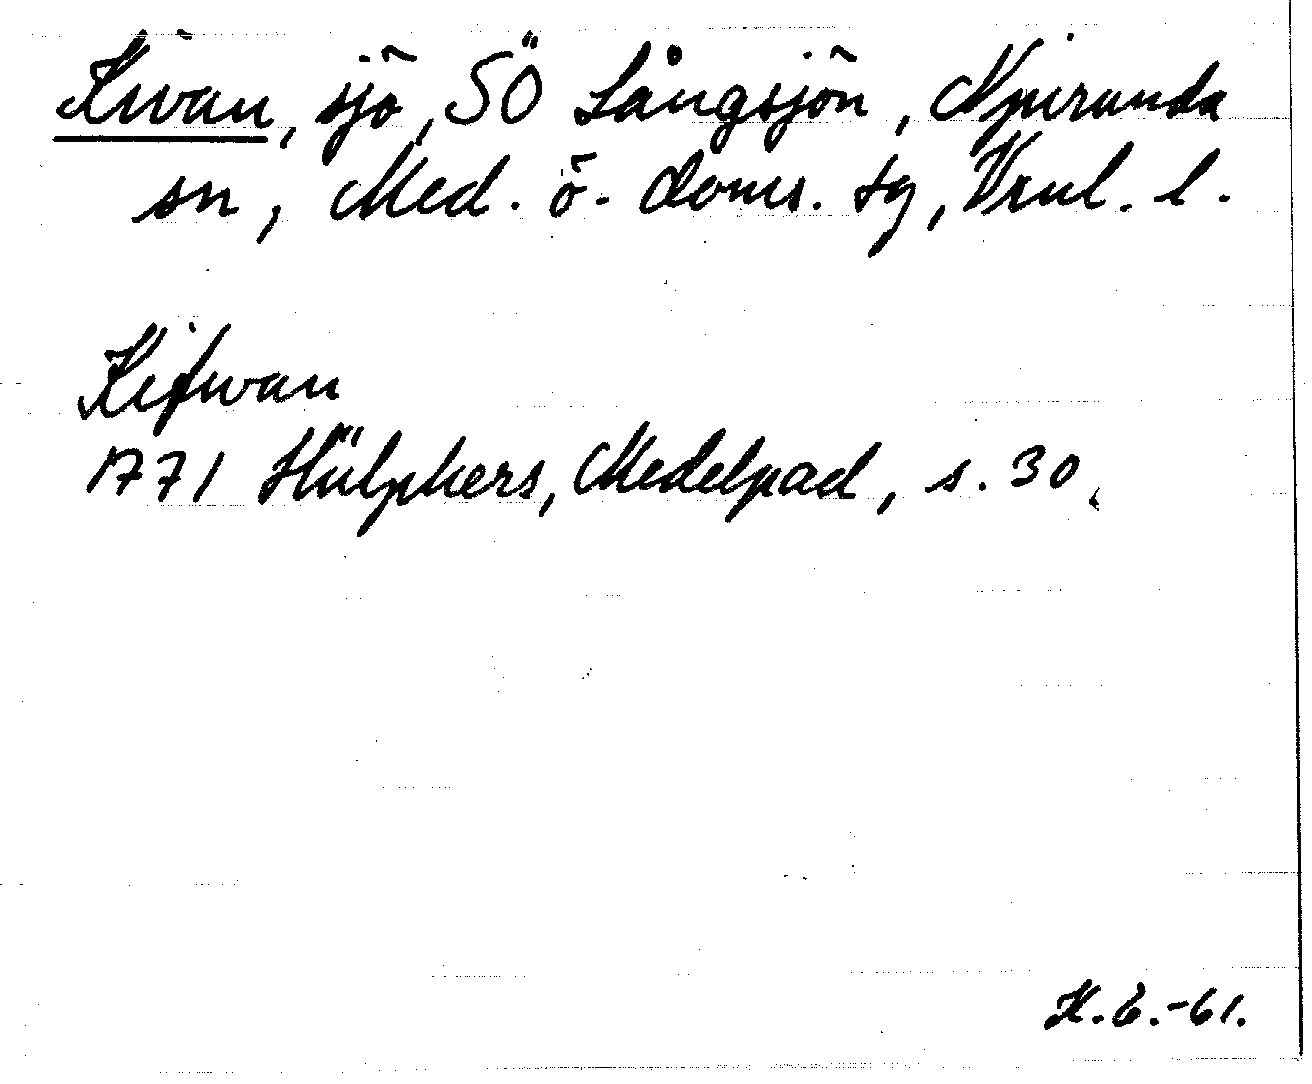 Kivan, sjö, SÖ Långsjön, Njurunda
sn, Med. ö. doms. tg, Vrnl. l.
Kifwan
1771 Hülphers, Medelpad, s. 30.
K.E.-61.